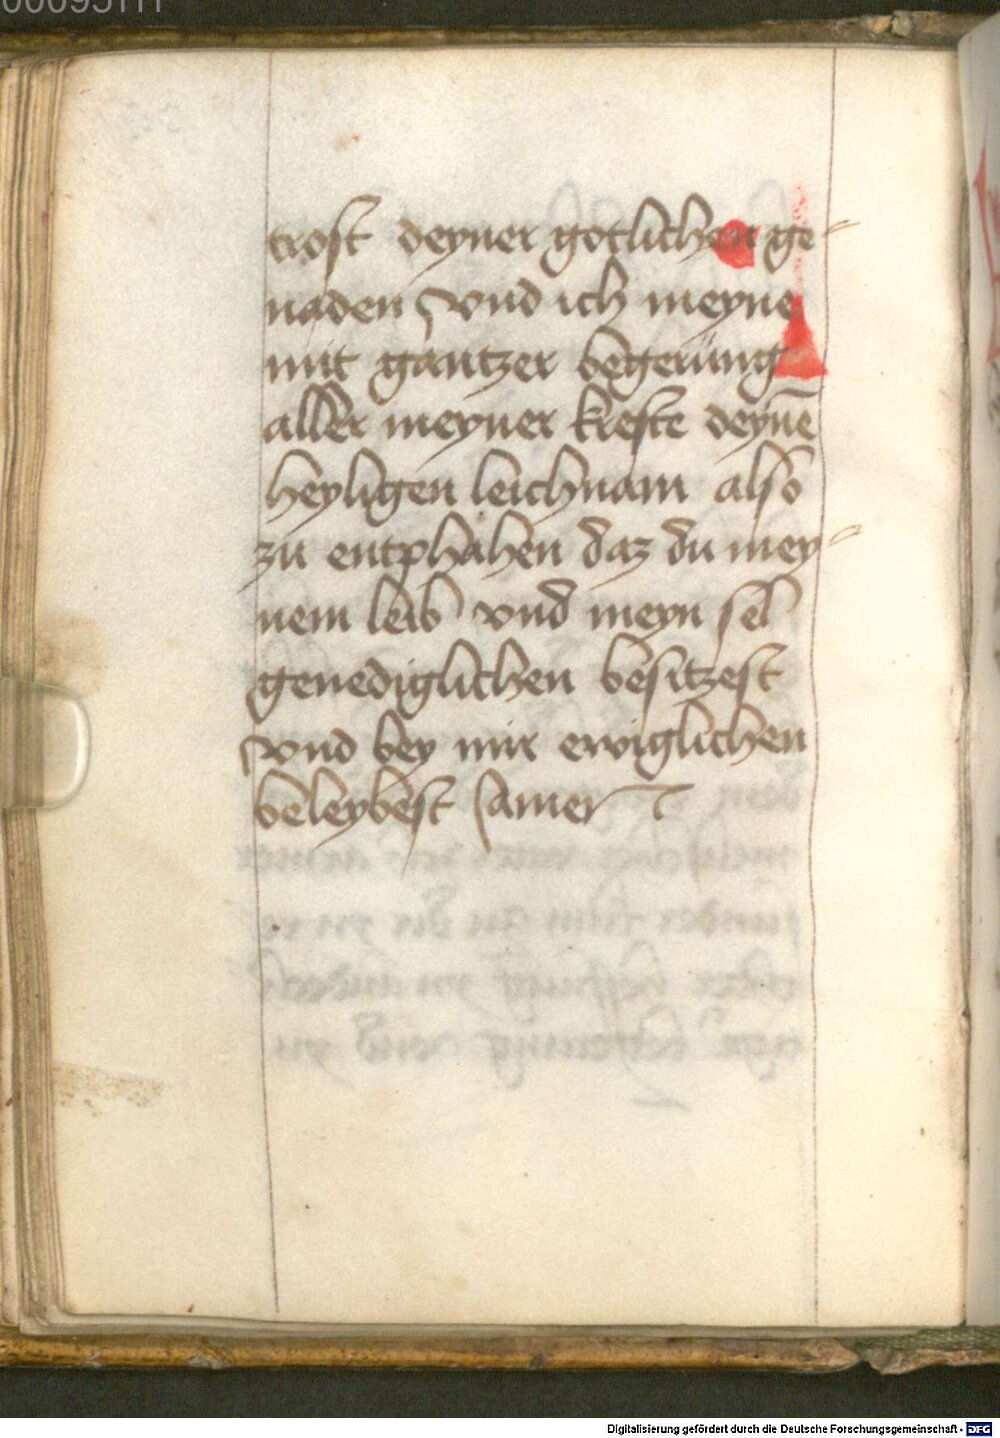 trost deyner gotlichen ge-
naden vnd ich meyne
mit gantzer begerung
aller meyner krefte deynē
heyligen leichnam also
zu entphahen daz du mey-
nem leib vnd meyn sel
genediglichen besitzest
vnd bey mir ewiglichen
beleybest amen
Digitalisierung gefördert durch die Deutsche Forschungsgemeinschaft - DFG